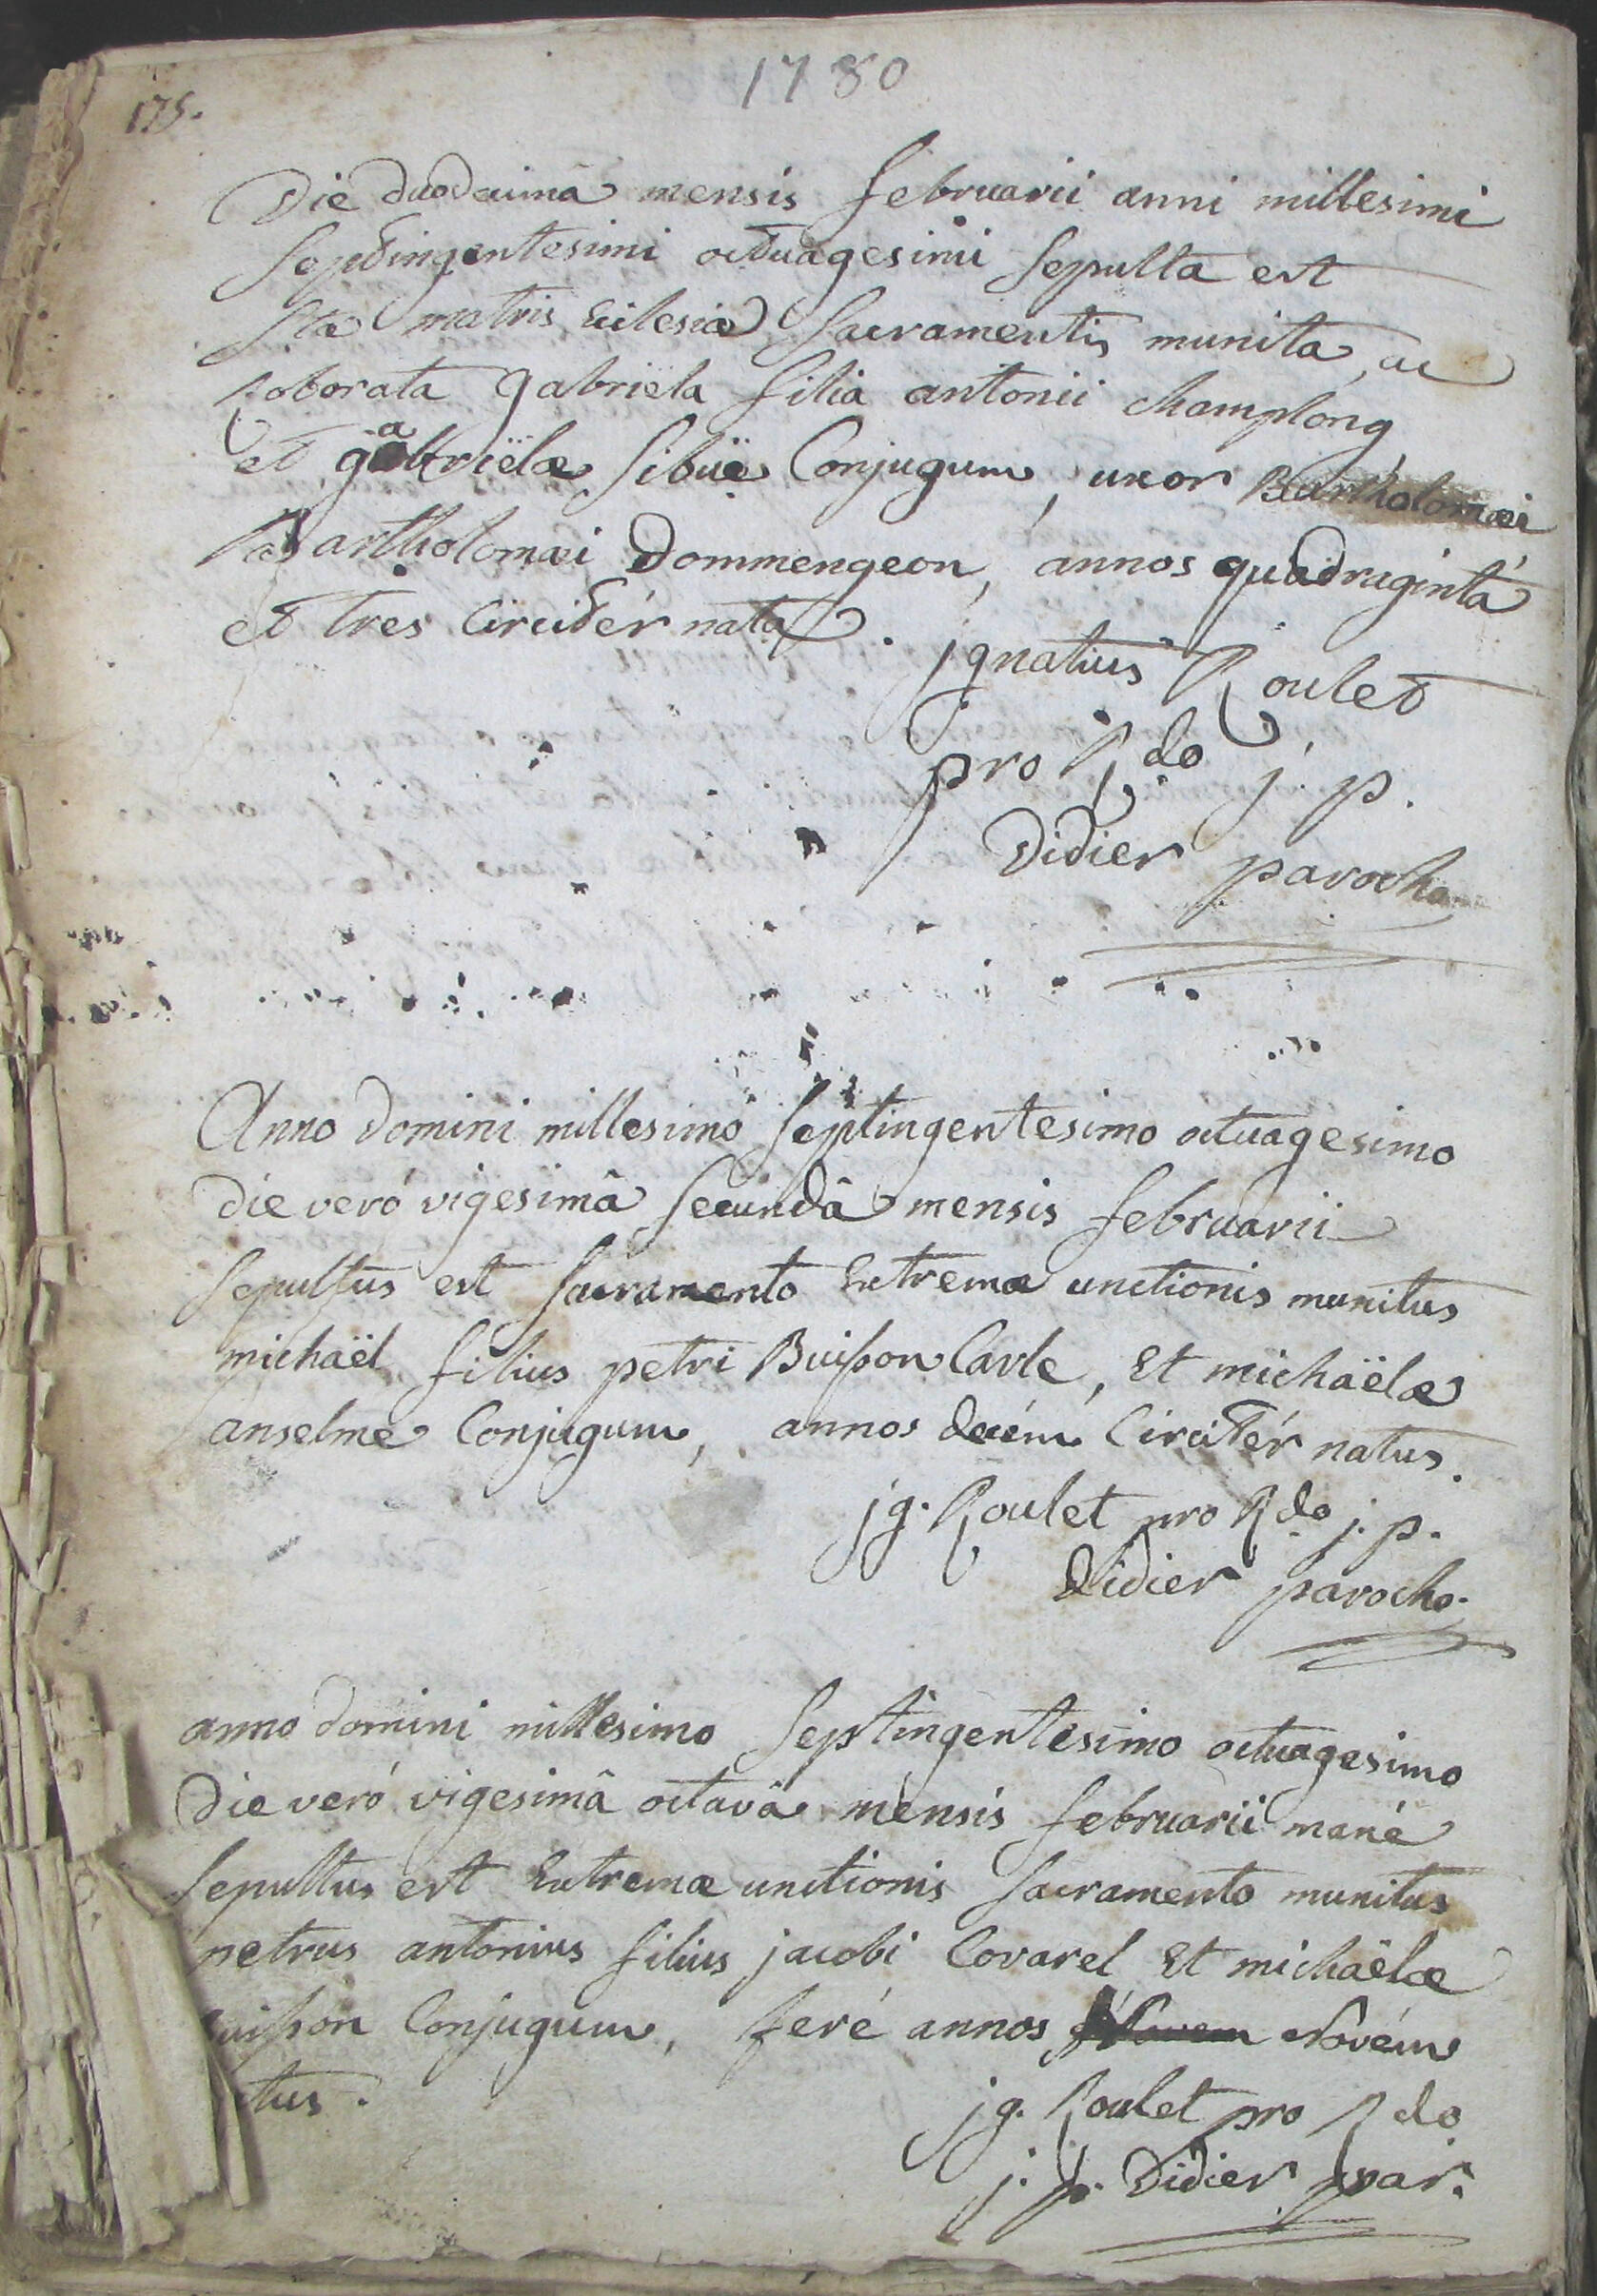 1780
175.
Die duodecimâ mensis februarii anni millesimi
septingentesimi octuagesimi sepulta est
stæ matris Ecclesiæ sacramentis munita, ac
roborata gabriela filia antonii champlong
et gabriëlæ sibüe Conjugum, uxor Bartholomæi
Bartholomæi Dommengeon, annos quadragintá
et tres Circitér nata.
jgnatius Roulet
pro Rdo j. p.
Didier parocho
Anno domini millesimo septingentesimo octuagesimo
die veró vigesimâ secundâ mensis februarii
sepultus est sacramento Extremæ unctionis munitus
michaël filius petri Buisson Carle, Et michaëlæ
anselme Conjugum, annos decém Circitér natus.
jg. Roulet pro Rdo j. p.
Didier parocho.
anno domini millesimo septingentesimo octuagesimo
die veró vigesimâ octavâ mensis februarii mané
sepultus est Extremæ unctionis sacramento munitus
petrus antonius filius jacobi Covarel Et michaëlæ
uisson Conjugum, feré annos Novém
tus.
jg. Roulet pro Rdo
j. p. Didier par.